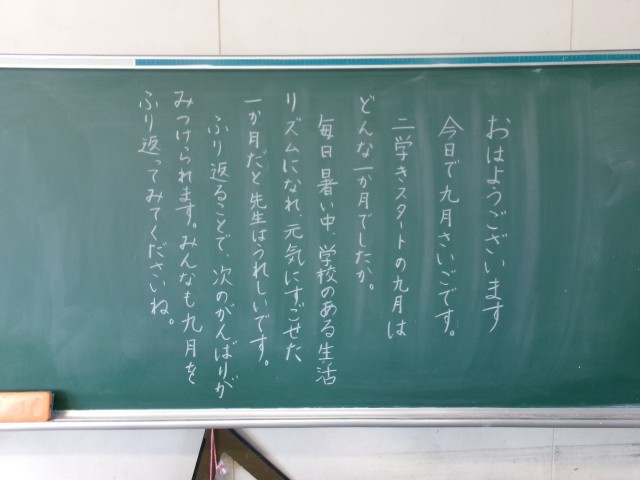 おはようございます
今日で九月さいごです。
二学きスタートの九月は
どんな一か月でしたか。
毎日暑い中、学校のある生活
リズムになれ、元気にすごせた
一か月だと先生はうれしいです。
ふり返ることで、次のがんばりが
みつけられます。みんなも九月を
ふり返ってみてくださいね。